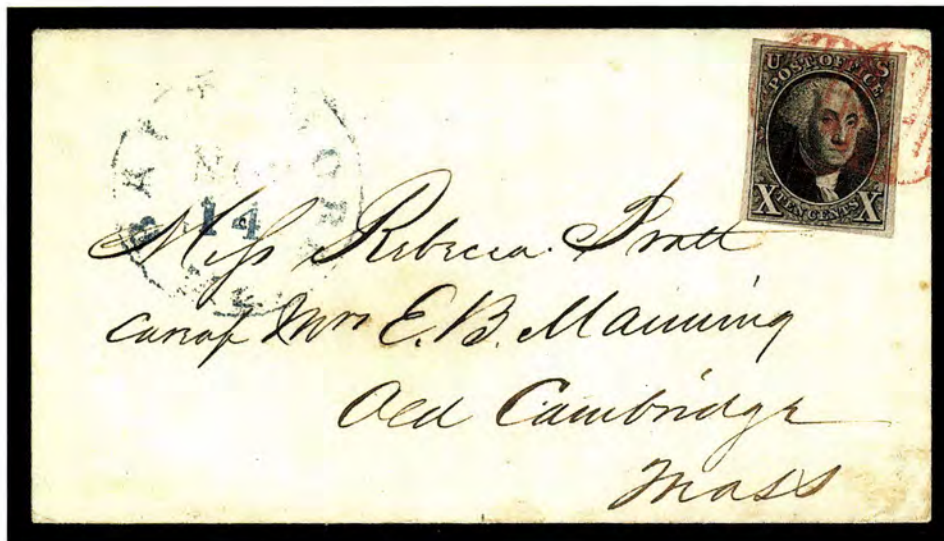 U S
POST OFFICE
X TEN CENTS X
14
Miss Rebecca Pratt
care of Mrs E. B. Manning
Old Cambridge
Mass